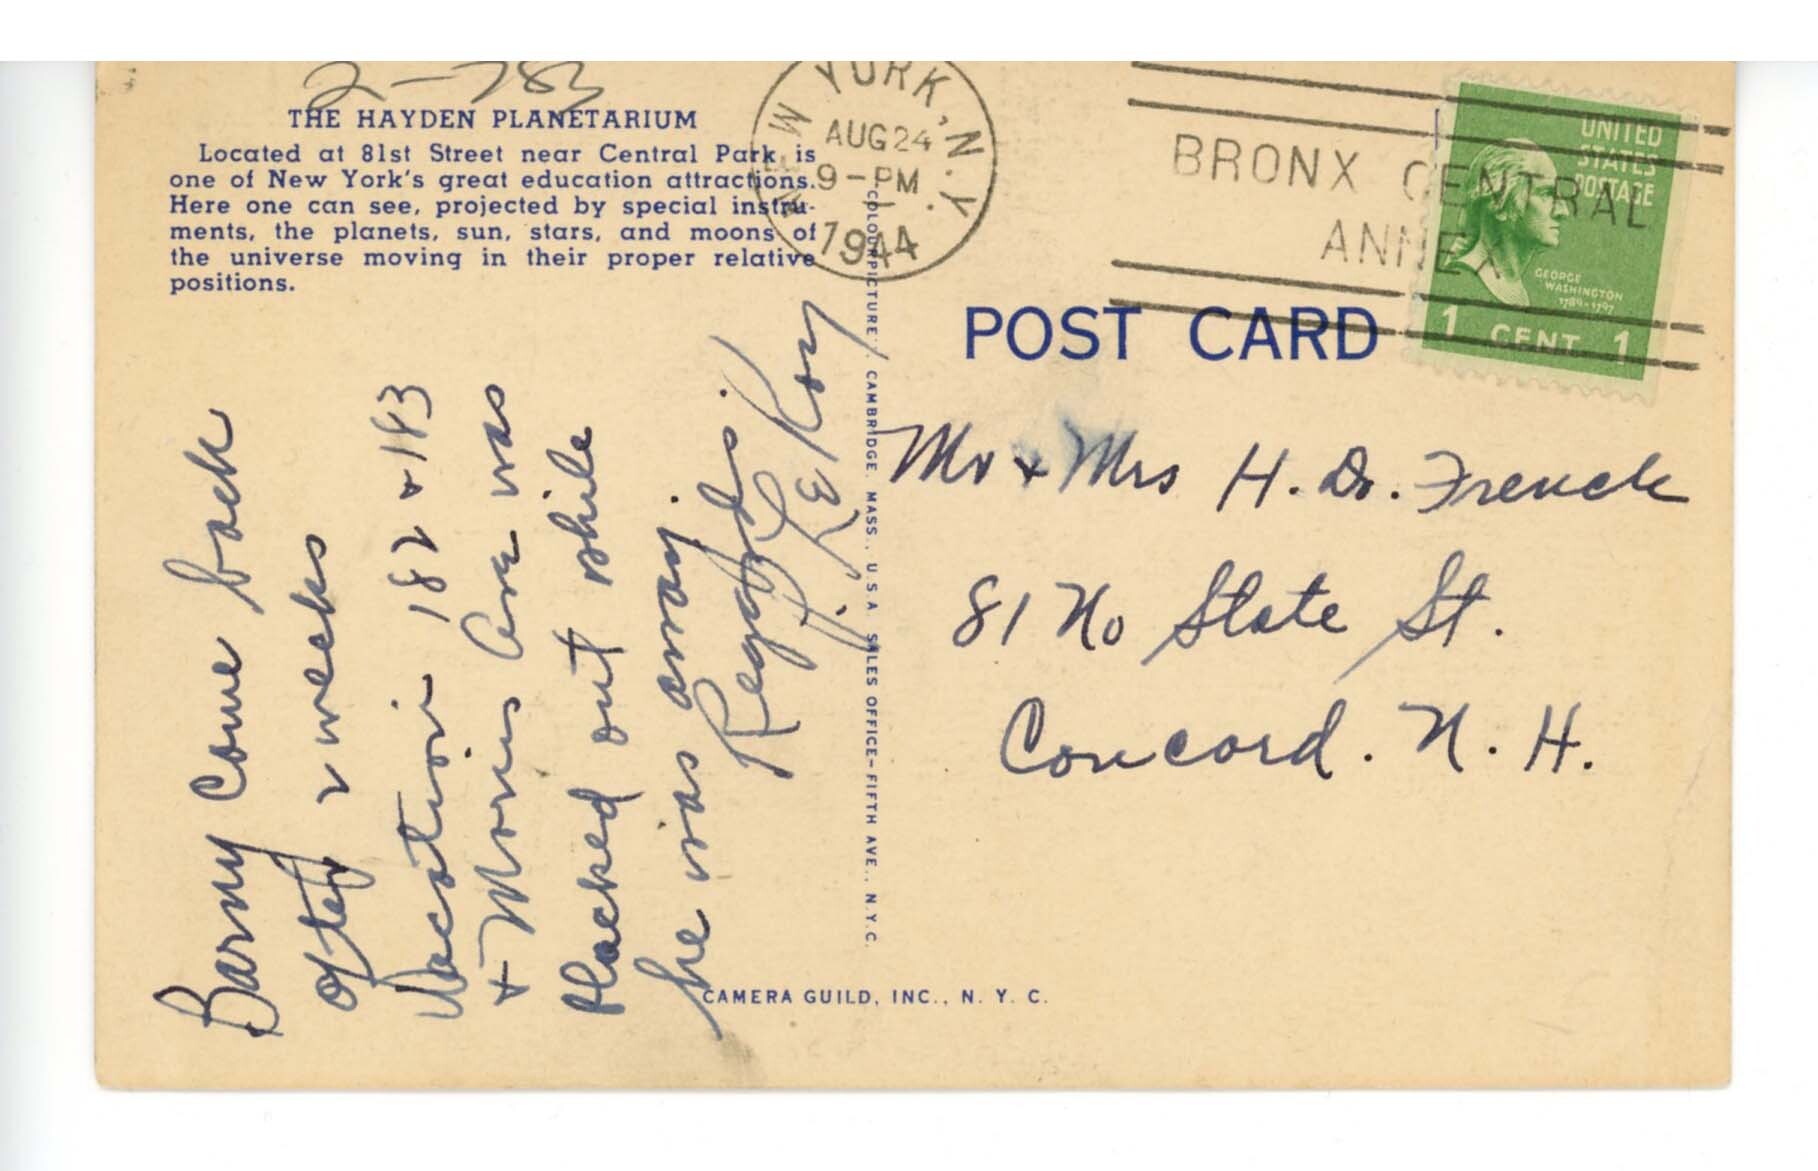 2-783
THE HAYDEN PLANETARIUM
Located at 81st Street near Central Park is
one of New York's great education attractions.
Here one can see, projected by special instru-
ments, the planets, sun, stars, and moons of
the universe moving in their proper relative
positions.
NEW YORK, N.Y.
AUG 24
9-PM
1944
BRONX CENTRAL
ANNEX
UNITED
STATES
POSTAGE
GEORGE
WASHINGTON
1789-1797
1 CENT 1
POST CARD
Barny Come back
after 2 weeks
Vacation 182 & 183
& Morris Ave was
blacked out while
he was away.
Regards
Roy
COLOURPICTURE, CAMBRIDGE, MASS., U.S.A. SALES OFFICE-FIFTH AVE., N.Y.C.
Mr & Mrs H. Dr. French
81 No State St.
Concord. N. H.
CAMERA GUILD, INC., N. Y. C.